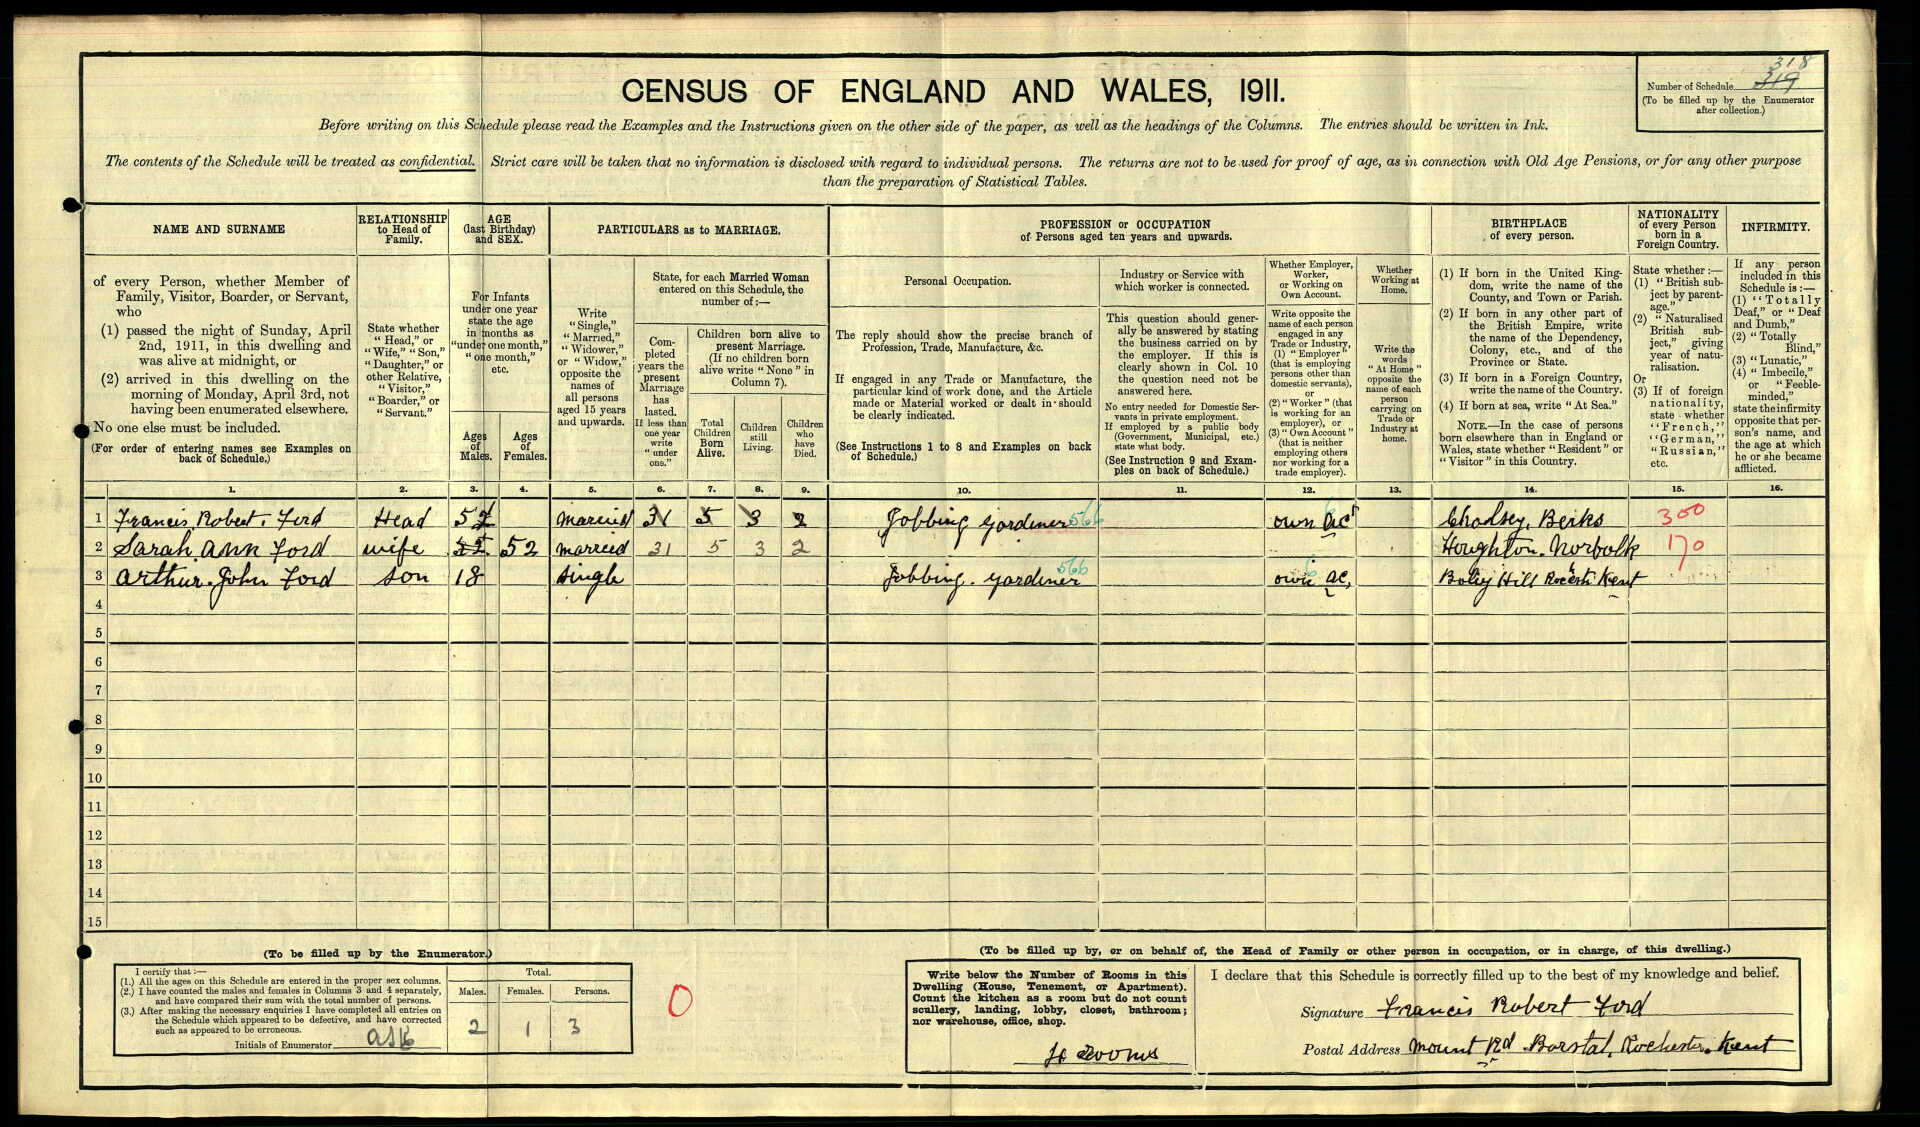 318
319
CENSUS OF ENGLAND AND WALES, 1911.
Number of Schedule
(To be filled up by the Enumerator
after collection.)
Before writing on this Schedule please read the Examples and the Instructions given on the other side of the paper, as well as the headings of the Columns. The entries should be written in Ink.
The contents of the Schedule will be treated as confidential. Strict care will be taken that no information is disclosed with regard to individual persons. The returns are not to be used for proof of age, as in connection with Old Age Pensions, or for any other purpose
than the preparation of Statistical Tables.
NAME AND SURNAME
of every Person, whether Member of
Family, Visitor, Boarder, or Servant,
who
(1) passed the night of Sunday, April
2nd, 1911, in this dwelling and
was alive at midnight, or
(2) arrived in this dwelling on the
morning of Monday, April 3rd, not
having been enumerated elsewhere.
No one else must be included.
(For order of entering names see Examples on
back of Schedule.)
RELATIONSHIP
to Head of
Family.
State whether
"Head," or
"Wife," "Son,"
"Daughter," or
other Relative,
"Visitor,"
"Boarder," or
"Servant."
AGE
(last Birthday)
and SEX.
For Infants
under one year
state the age
in months as
"under one month,"
"one month,"
etc.
Ages
of
Males.
Ages
of
Females.
PARTICULARS as to MARRIAGE.
Write
"Single,"
"Married,"
"Widower,"
or "Widow,"
opposite the
names of
all persons
aged 15 years
and upwards.
State, for each Married Woman
entered on this Schedule, the
number of:—
Com-
pleted
years the
present
Marriage
has
lasted.
If less than
one year
write
"under
one."
Children born alive to
present Marriage.
(If no children born
alive write "None" in
Column 7).
Total
Children
Born
Alive.
Children
still
Living.
Children
who
have
Died.
PROFESSION or OCCUPATION
of Persons aged ten years and upwards.
Personal Occupation.
The reply should show the precise branch of
Profession, Trade, Manufacture, &c.
If engaged in any Trade or Manufacture, the
particular kind of work done, and the Article
made or Material worked or dealt in should
be clearly indicated.
(See Instructions 1 to 8 and Examples on back
of Schedule.)
Industry or Service with
which worker is connected.
This question should gener-
ally be answered by stating
the business carried on by
the employer. If this is
clearly shown in Col. 10
the question need not be
answered here.
No entry needed for Domestic Ser-
vants in private employment.
If employed by a public body
(Government, Municipal, etc.)
state what body.
(See Instruction 9 and Exam-
ples on back of Schedule.)
Whether Employer,
Worker,
or Working on
Own Account.
Write opposite the
name of each person
engaged in any
Trade or Industry,
(1) "Employer"
(that is employing
persons other than
domestic servants),
or
(2) "Worker" (that
is working for an
employer), or
(3) "Own Account"
(that is neither
employing others
nor working for a
trade employer).
Whether
Working at
Home.
Write the
words
"At Home"
opposite the
name of each
person
carrying on
Trade or
Industry at
home.
BIRTHPLACE
of every person.
(1) If born in the United King-
dom, write the name of the
County, and Town or Parish.
(2) If born in any other part of
the British Empire, write
the name of the Dependency,
Colony, etc., and of the
Province or State.
(3) If born in a Foreign Country,
write the name of the Country.
(4) If born at sea, write "At Sea."
NOTE.—In the case of persons
born elsewhere than in England or
Wales, state whether "Resident" or
"Visitor" in this Country.
NATIONALITY
of every Person
born in a
Foreign Country.
State whether:—
(1) "British sub-
ject by parent-
age."
(2) "Naturalised
British sub-
ject," giving
year of natu-
ralisation.
Or
(3) If of foreign
nationality,
state whether
"French,"
"German,"
"Russian,"
etc.
INFIRMITY.
If any person
included in this
Schedule is:—
(1) "Totally
Deaf," or "Deaf
and Dumb,"
(2) "Totally
Blind,"
(3) "Lunatic,"
(4) "Imbecile,"
or "Feeble-
minded,"
state the infirmity
opposite that per-
son's name, and
the age at which
he or she became
afflicted.
1. 2. 3. 4. 5. 6. 7. 8. 9. 10. 11. 12. 13. 14. 15. 16.
1 Francis Robert Ford Head 52 married 31 5 3 2 Jobbing Gardiner 566 own ac 6 Cholsey, Berks 300
2 Sarah Ann Ford wife 52 52 married 31 5 3 2 Houghton. Norfolk 170
3 Arthur John Ford son 18 single Jobbing Gardiner 566 own ac 6 Boley Hill Kent
4
5
6
7
8
9
10
11
12
13
14
15
(To be filled up by the Enumerator.)
I certify that:—
(1.) All the ages on this Schedule are entered in the proper sex columns.
(2.) I have counted the males and females in Columns 3 and 4 separately,
and have compared their sum with the total number of persons.
(3.) After making the necessary enquiries I have completed all entries on
the Schedule which appeared to be defective, and have corrected
such as appeared to be erroneous.
Initials of Enumerator
Total.
Males. Females. Persons.
2 1 3
0
(To be filled up by, or on behalf of, the Head of Family or other person in occupation, or in charge, of this dwelling.)
Write below the Number of Rooms in this
Dwelling (House, Tenement, or Apartment).
Count the kitchen as a room but do not count
scullery, landing, lobby, closet, bathroom;
nor warehouse, office, shop.
rooms
I declare that this Schedule is correctly filled up to the best of my knowledge and belief.
Signature Francis Robert Ford
Postal Address Mount Rd Borstal, Rochester. Kent